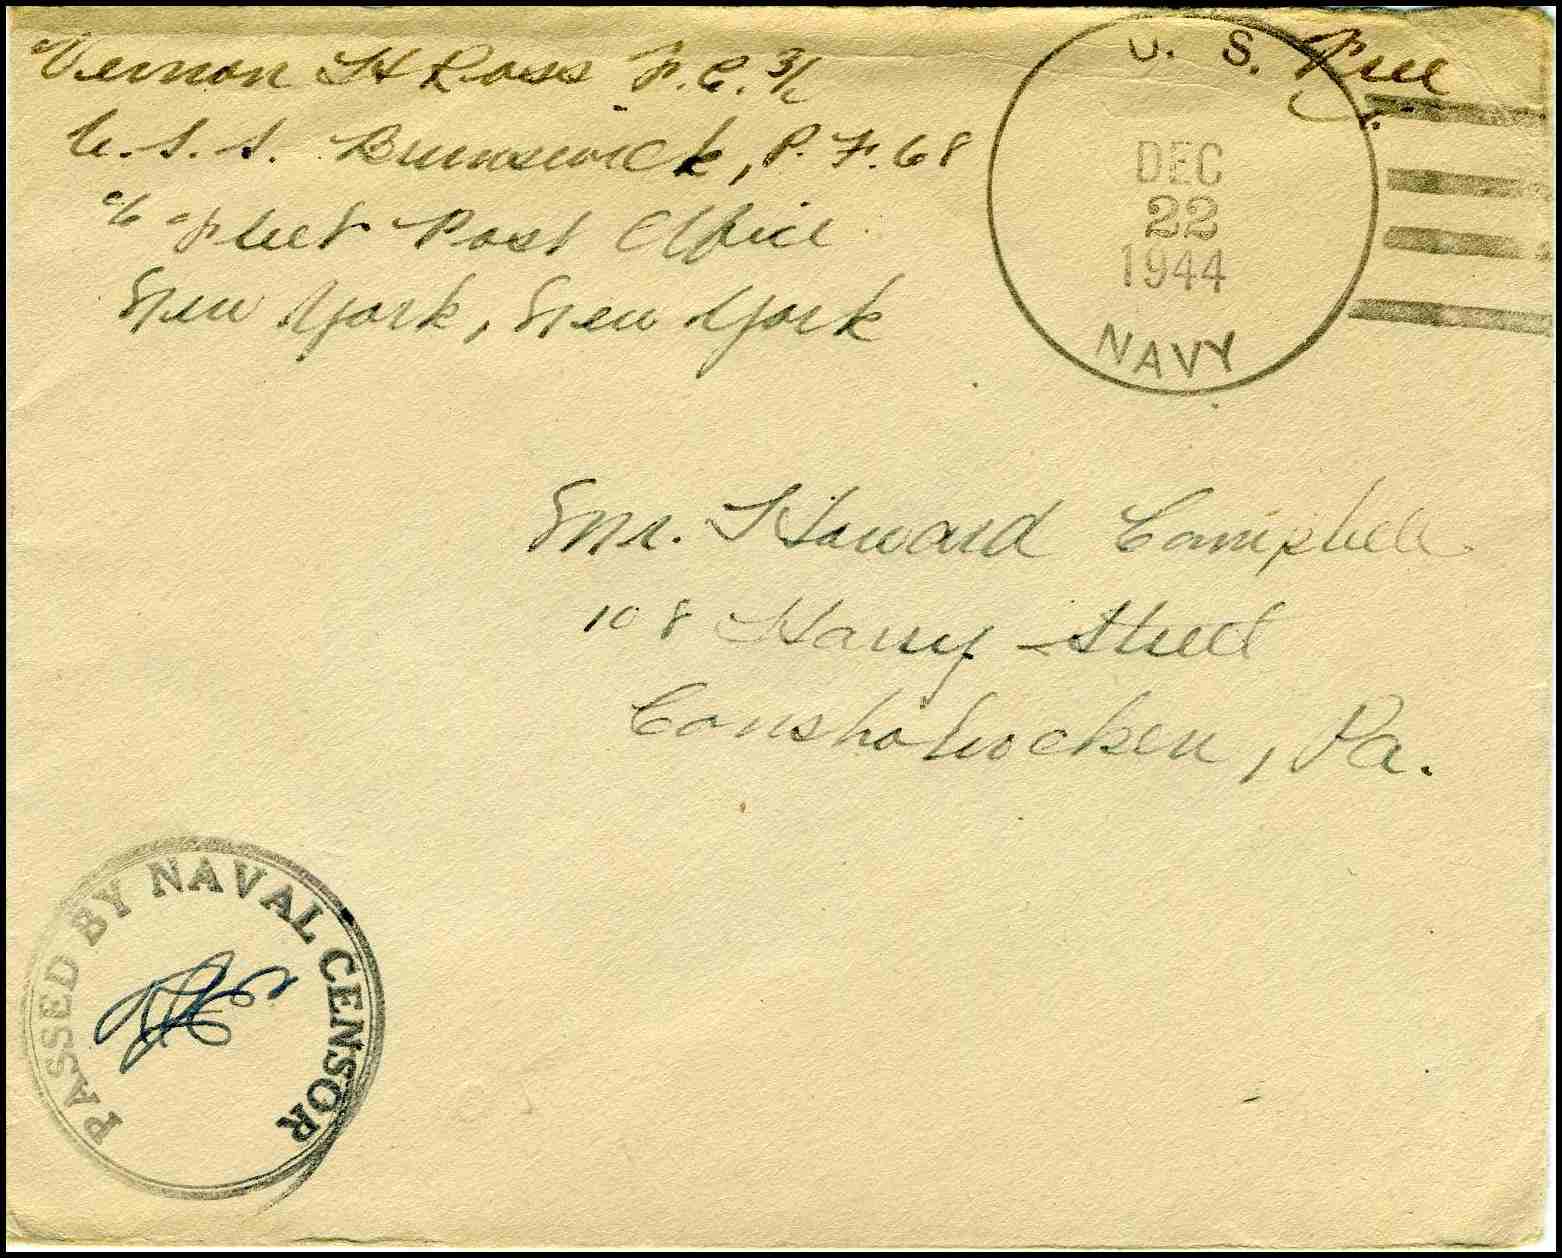 Vernon H Ross F.C. 3/c
U.S.S. Brunswick, P.F. 68
c/o Fleet Post Office
New York, New York
Free
U. S.
DEC
22
1944
NAVY
Mr. Howard Campbell
108 Harry Street
Conshohocken, Pa.
PASSED BY NAVAL CENSOR